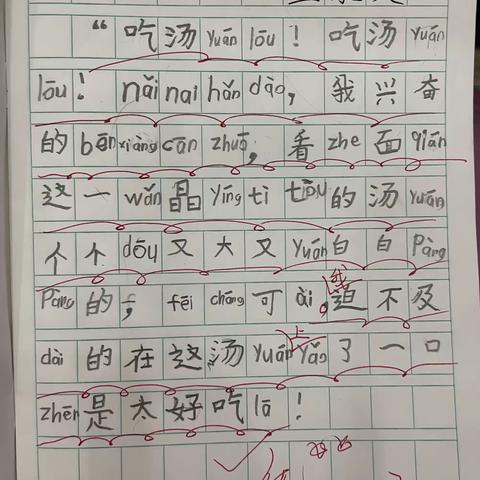 “吃汤yuán lōu！吃汤yuán
lōu！nǎi nai hǎn dào，我兴奋
的bēn xiàng cān zhuō，看zhe面qián
这一wǎn晶yíng tì tōu的汤yuán
个个dōu又大又yuán白白Pàng
Pàng的，fēi cháng可ài，我迫不及
dài的在这汤yuán上yǎo了一口
zhēn是太好吃lā！